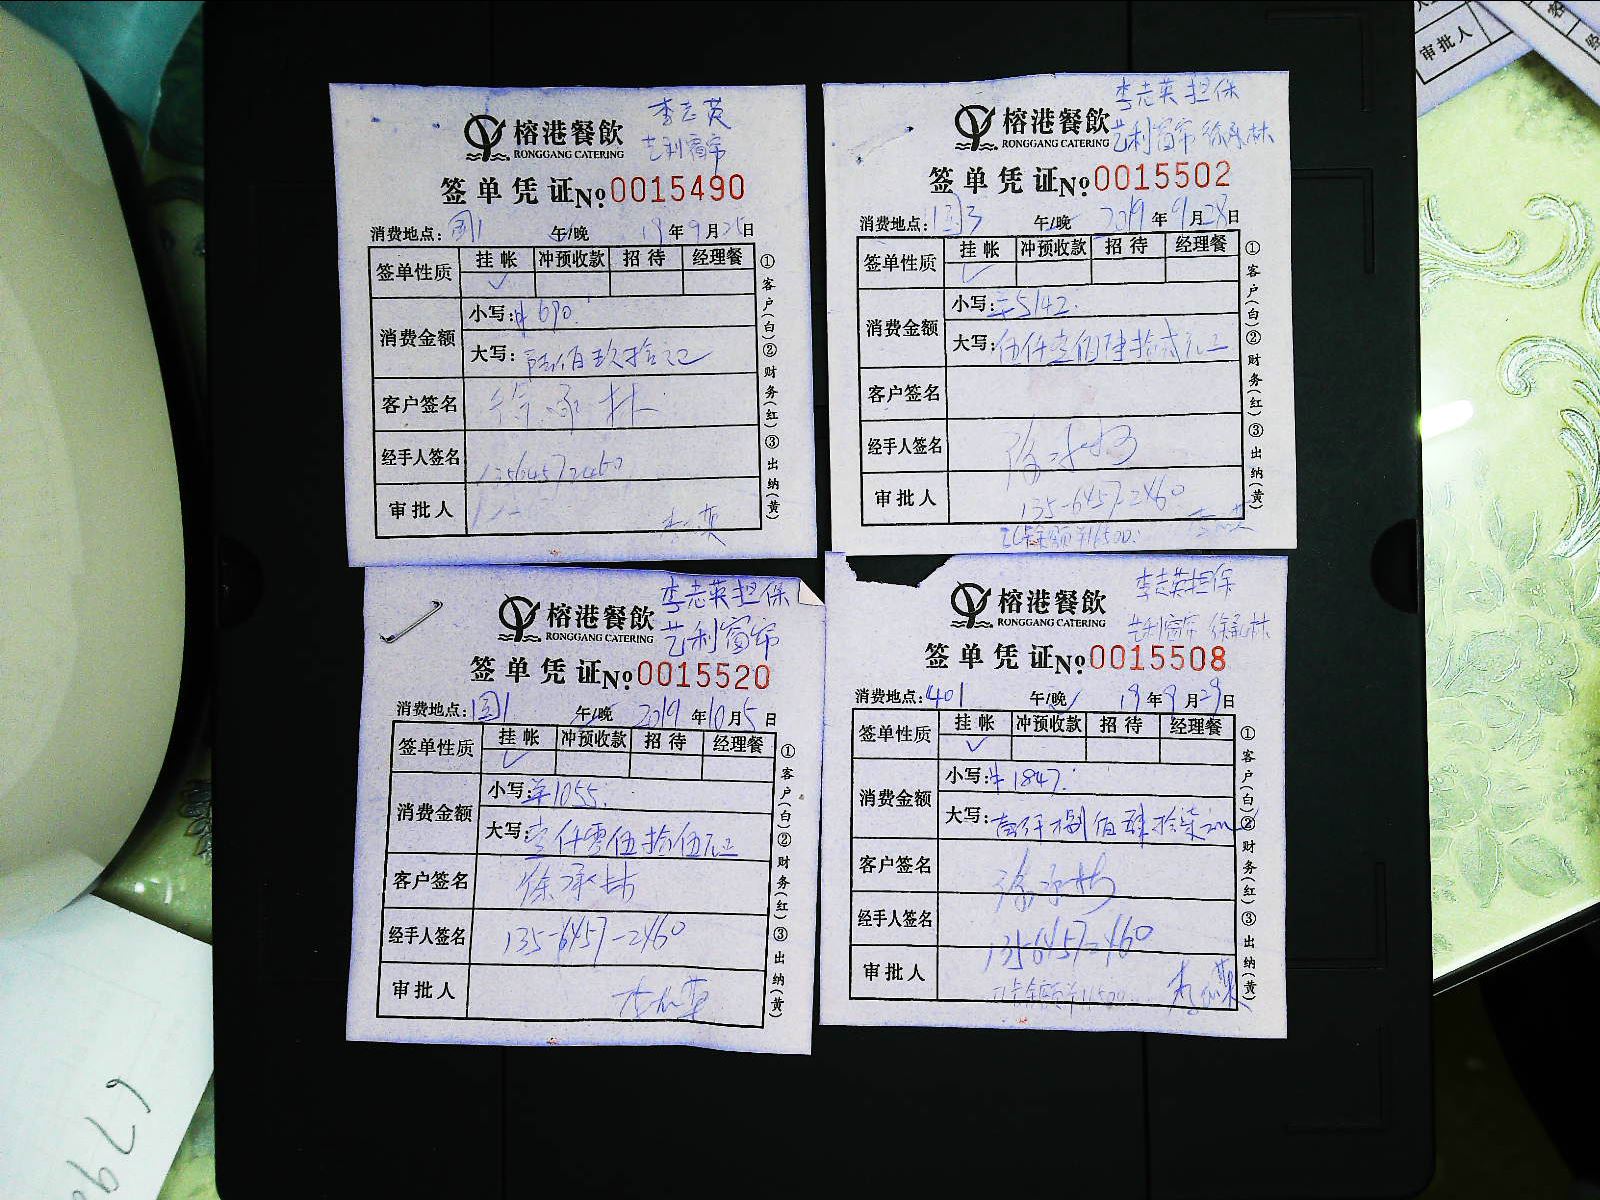 李志英
艺利窗帘
榕港餐飲
RONGGANG CATERING
签单凭证No 0015490
消费地点:国1 午/晚 19年9月25日
签单性质 挂帐 冲预收款 招待 经理餐
✓
消费金额 小写:¥690.
大写:陆佰玖拾元正
客户签名 徐承林
经手人签名 13564572460
审批人 李志英
①客户(白)②财务(红)③出纳(黄)
李志英担保
艺利窗帘 徐承林
榕港餐飲
RONGGANG CATERING
签单凭证No 0015502
消费地点:国3 午/晚 2019年9月28日
签单性质 挂帐 冲预收款 招待 经理餐
✓
消费金额 小写:¥5142.
大写:伍仟壹佰肆拾贰元正
客户签名
经手人签名 徐承林
审批人 135-6457-2460
李志英
①客户(白)②财务(红)③出纳(黄)
李志英担保
艺利窗帘
榕港餐飲
RONGGANG CATERING
签单凭证No 0015520
消费地点:国1 午/晚 2019年10月5日
签单性质 挂帐 冲预收款 招待 经理餐
✓
消费金额 小写:¥1055.
大写:壹仟零伍拾伍元正
客户签名 徐承林
经手人签名 135-6457-2460
审批人 李志英
①客户(白)②财务(红)③出纳(黄)
李志英担保
艺利窗帘 徐承林
榕港餐飲
RONGGANG CATERING
签单凭证No 0015508
消费地点:401 午/晚✓ 19年9月29日
签单性质 挂帐 冲预收款 招待 经理餐
✓
消费金额 小写:¥1847.
大写:壹仟捌佰肆拾柒元
客户签名 徐承林
经手人签名 135-6457-2460
审批人 李志英
①客户(白)②财务(红)③出纳(黄)
审批人